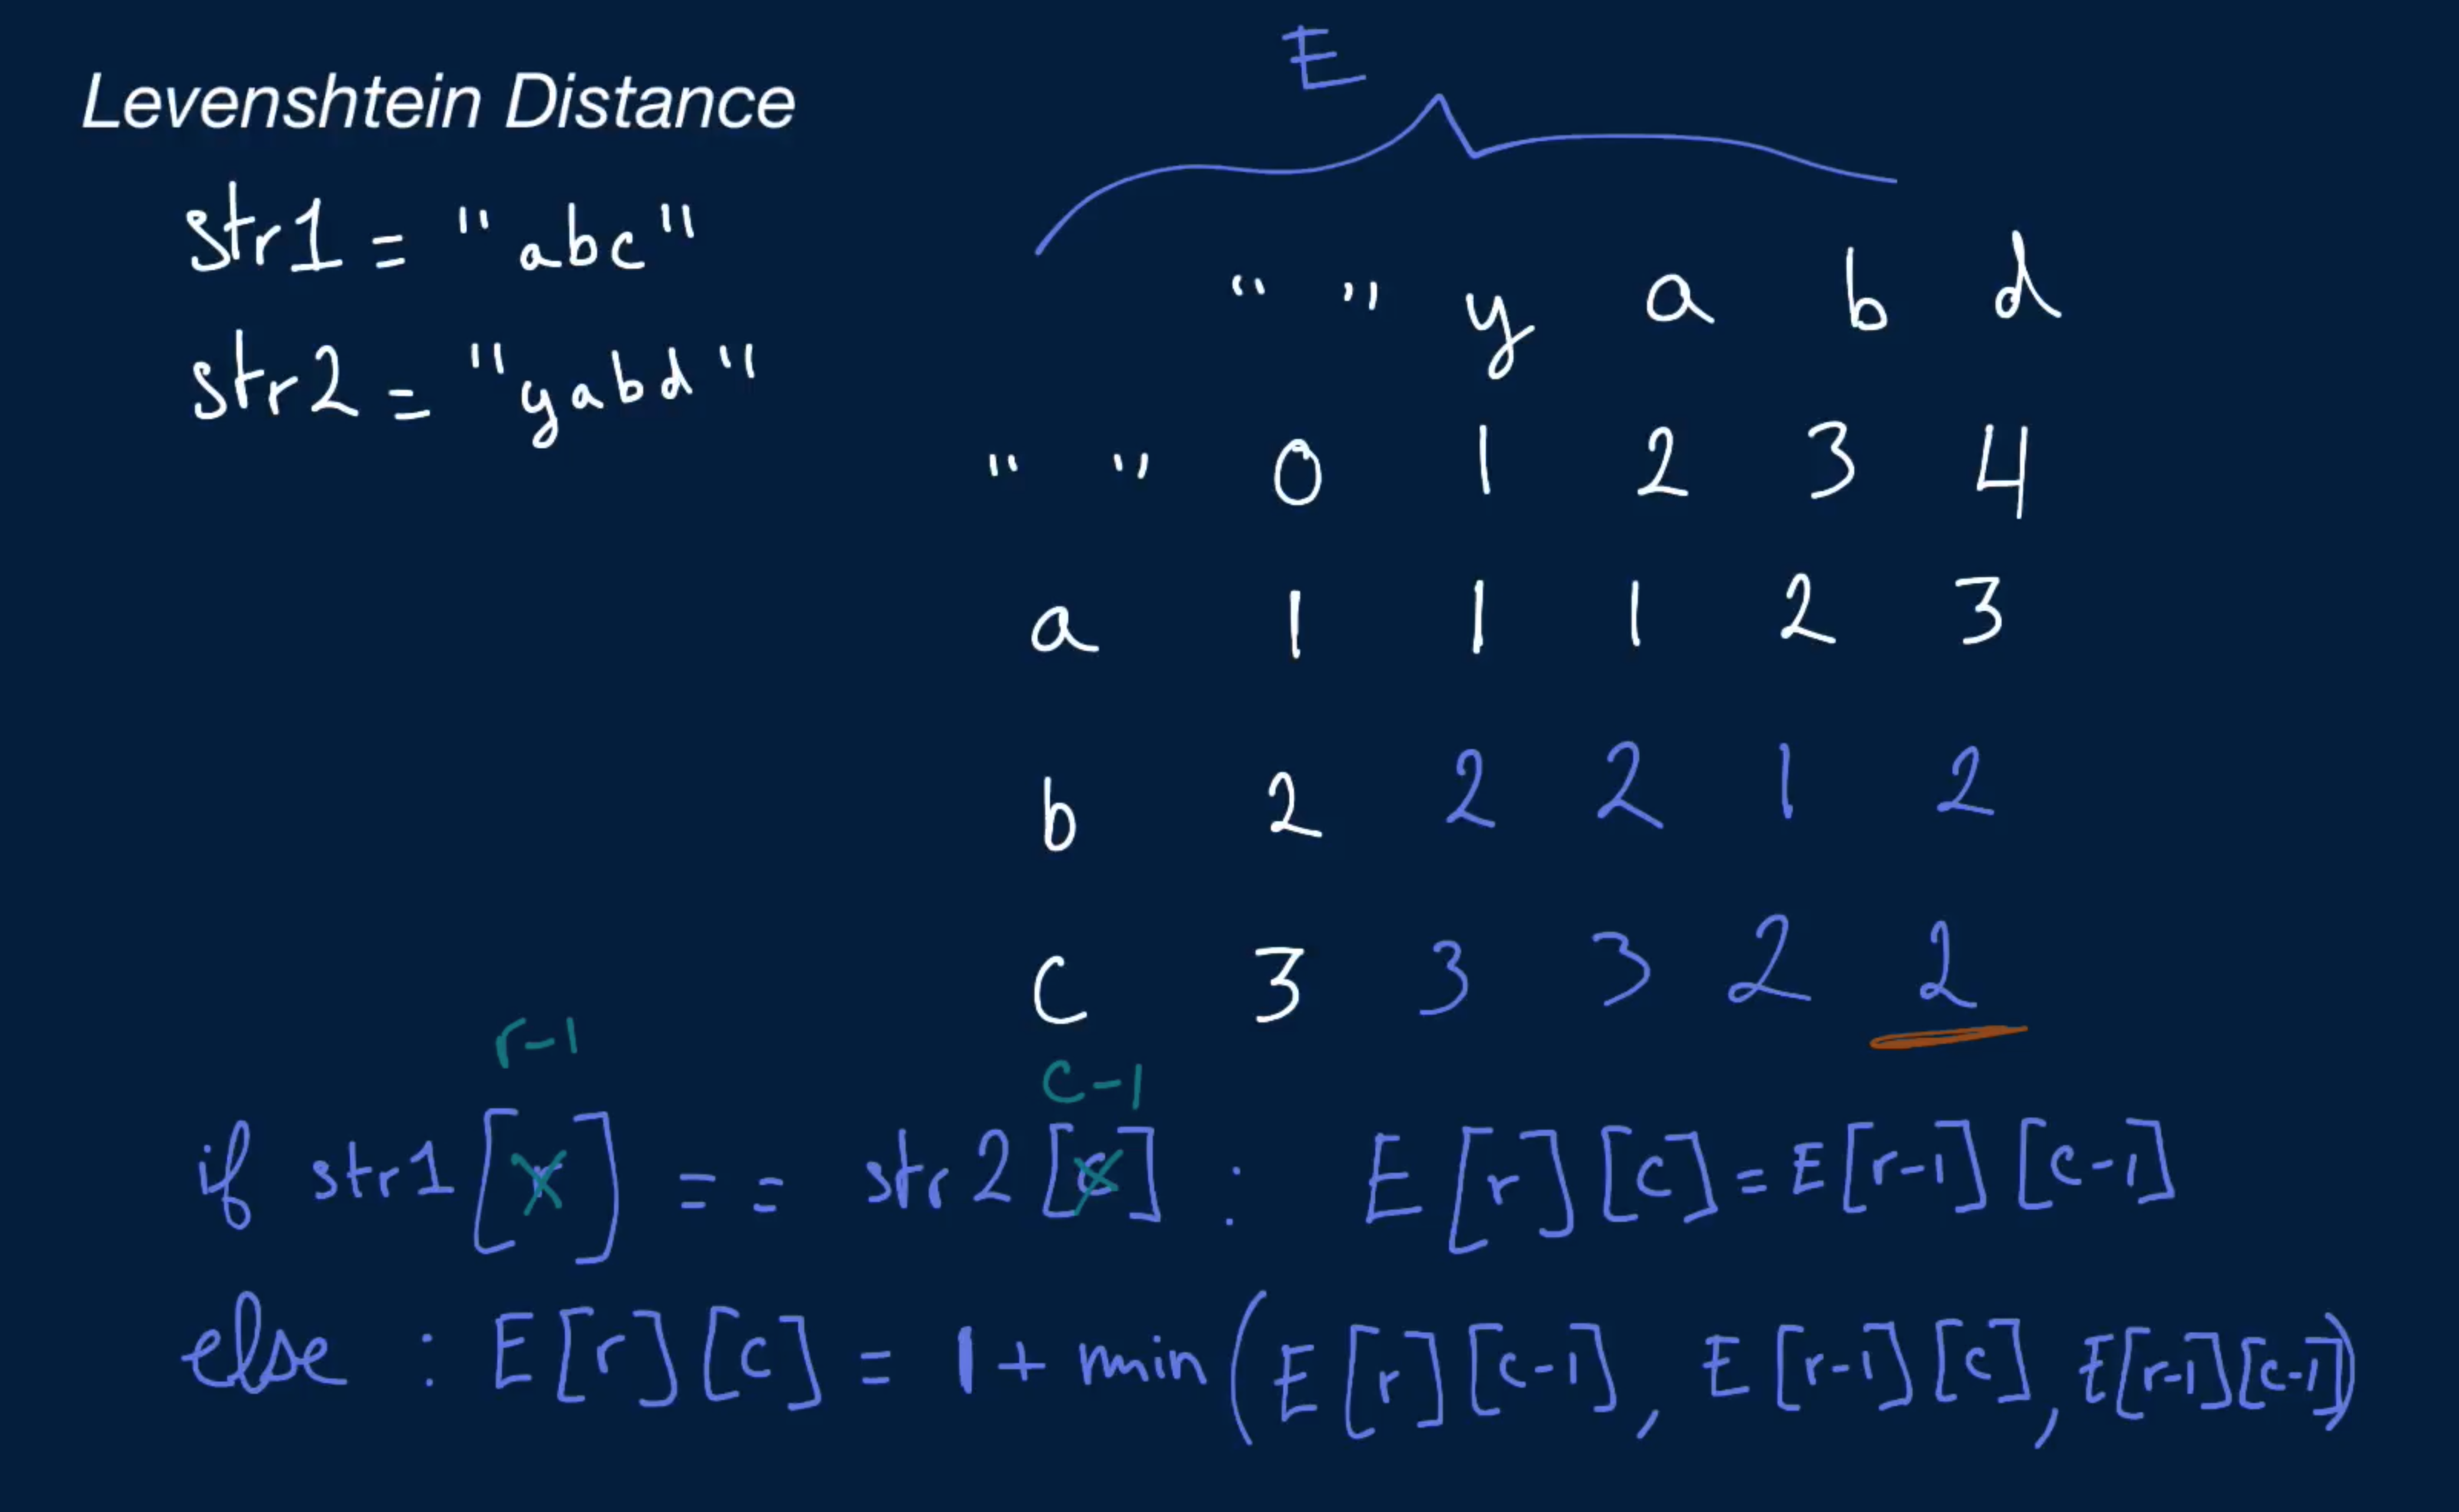 E
Levenshtein Distance
str1 = "abc"
str2 = "yabd"
" " y a b d
" " 0 1 2 3 4
a 1 1 1 2 3
b 2 2 2 1 2
c 3 3 3 2 2
r-1 c-1
if str1[r] == str2[c] : E[r][c] = E[r-1][c-1]
else : E[r][c] = 1 + min(E[r][c-1], E[r-1][c], E[r-1][c-1])